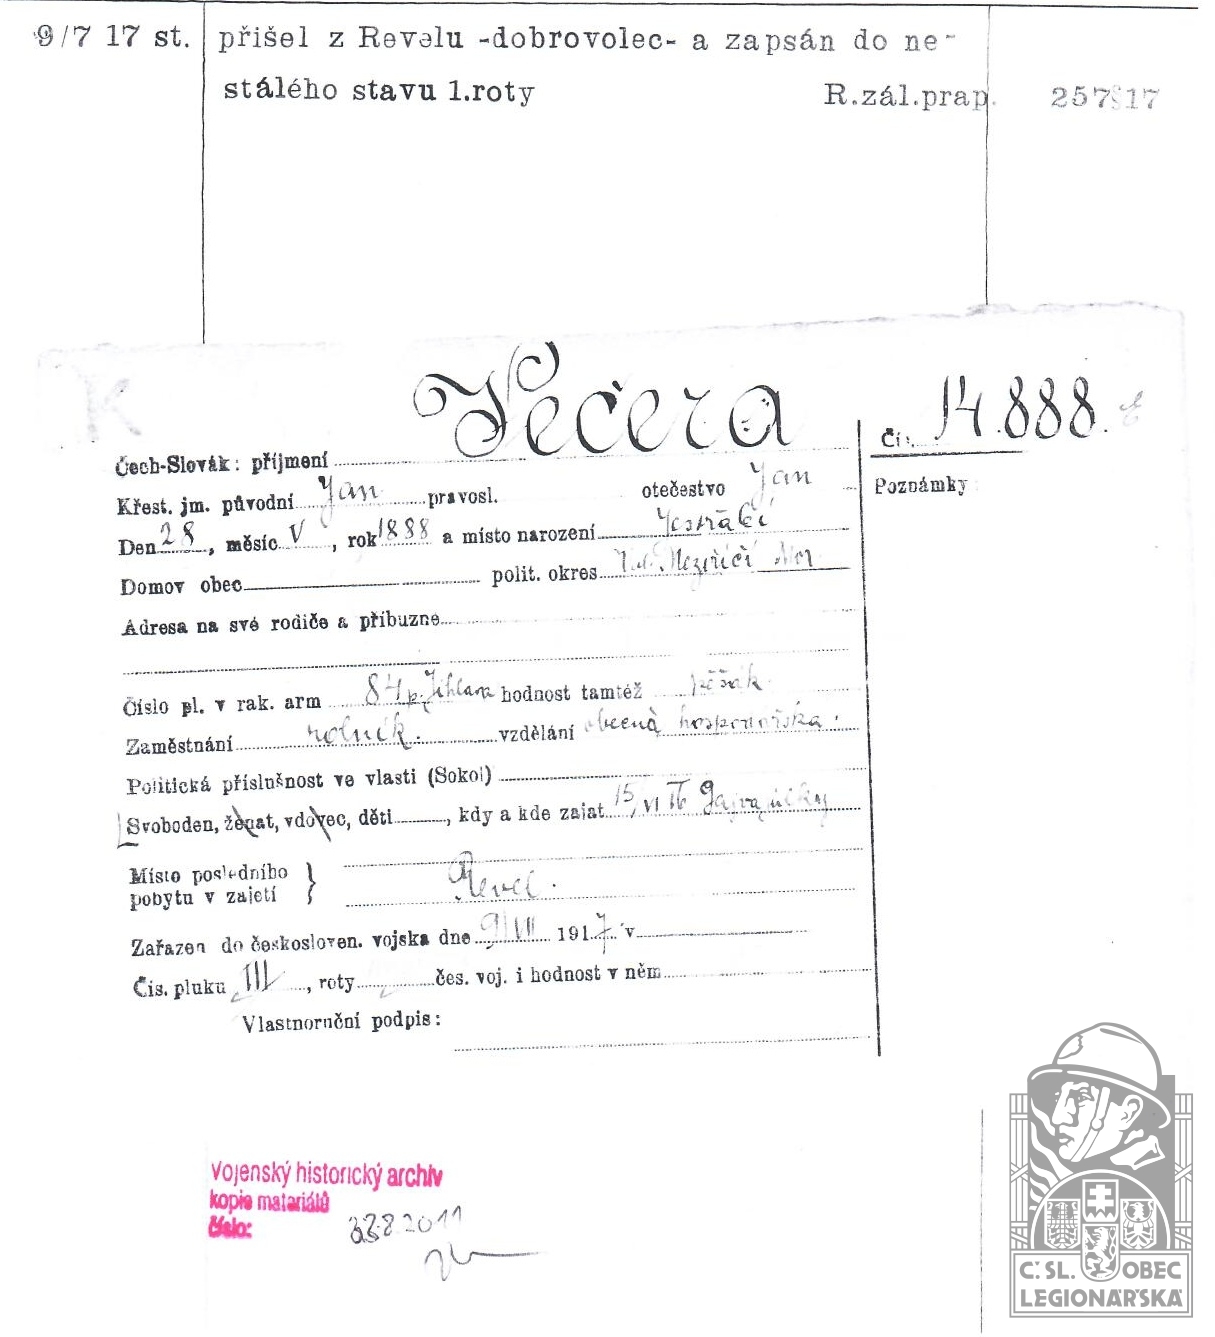 9/7 17 st. přišel z Revelu -dobrovolec- a zapsán do ne-
stálého stavu 1.roty R.zál.prap. 257 17
K
Čech-Slovák: příjmení Večera Čís. 14.888.
Křest. jm. původní Jan pravosl. otečestvo Jan Poznámky
Den 28, měsíc V, rok 1888 a místo narození Jestřabí
Domov obec polit. okres Vel. Meziříčí Mor
Adresa na své rodiče a příbuzné
Číslo pl. v rak. arm 84 p. Jihlava hodnost tamtéž pěšák
Zaměstnání rolník. vzdělání obecná hospodářská.
Politická příslušnost ve vlasti (Sokol)
Svoboden, ženat, vdovec, děti, kdy a kde zajat 15/VI 16
Místo posledního
pobytu v zajetí } Revel.
Zařazen do českosloven. vojska dne 9/VII 1917 v
Čís. pluku III, roty čes. voj. i hodnost v něm
Vlastnoruční podpis:
Vojenský historický archiv
kopie materiálů
číslo: 2011
Č. SL. OBEC
LEGIONÁŘSKÁ